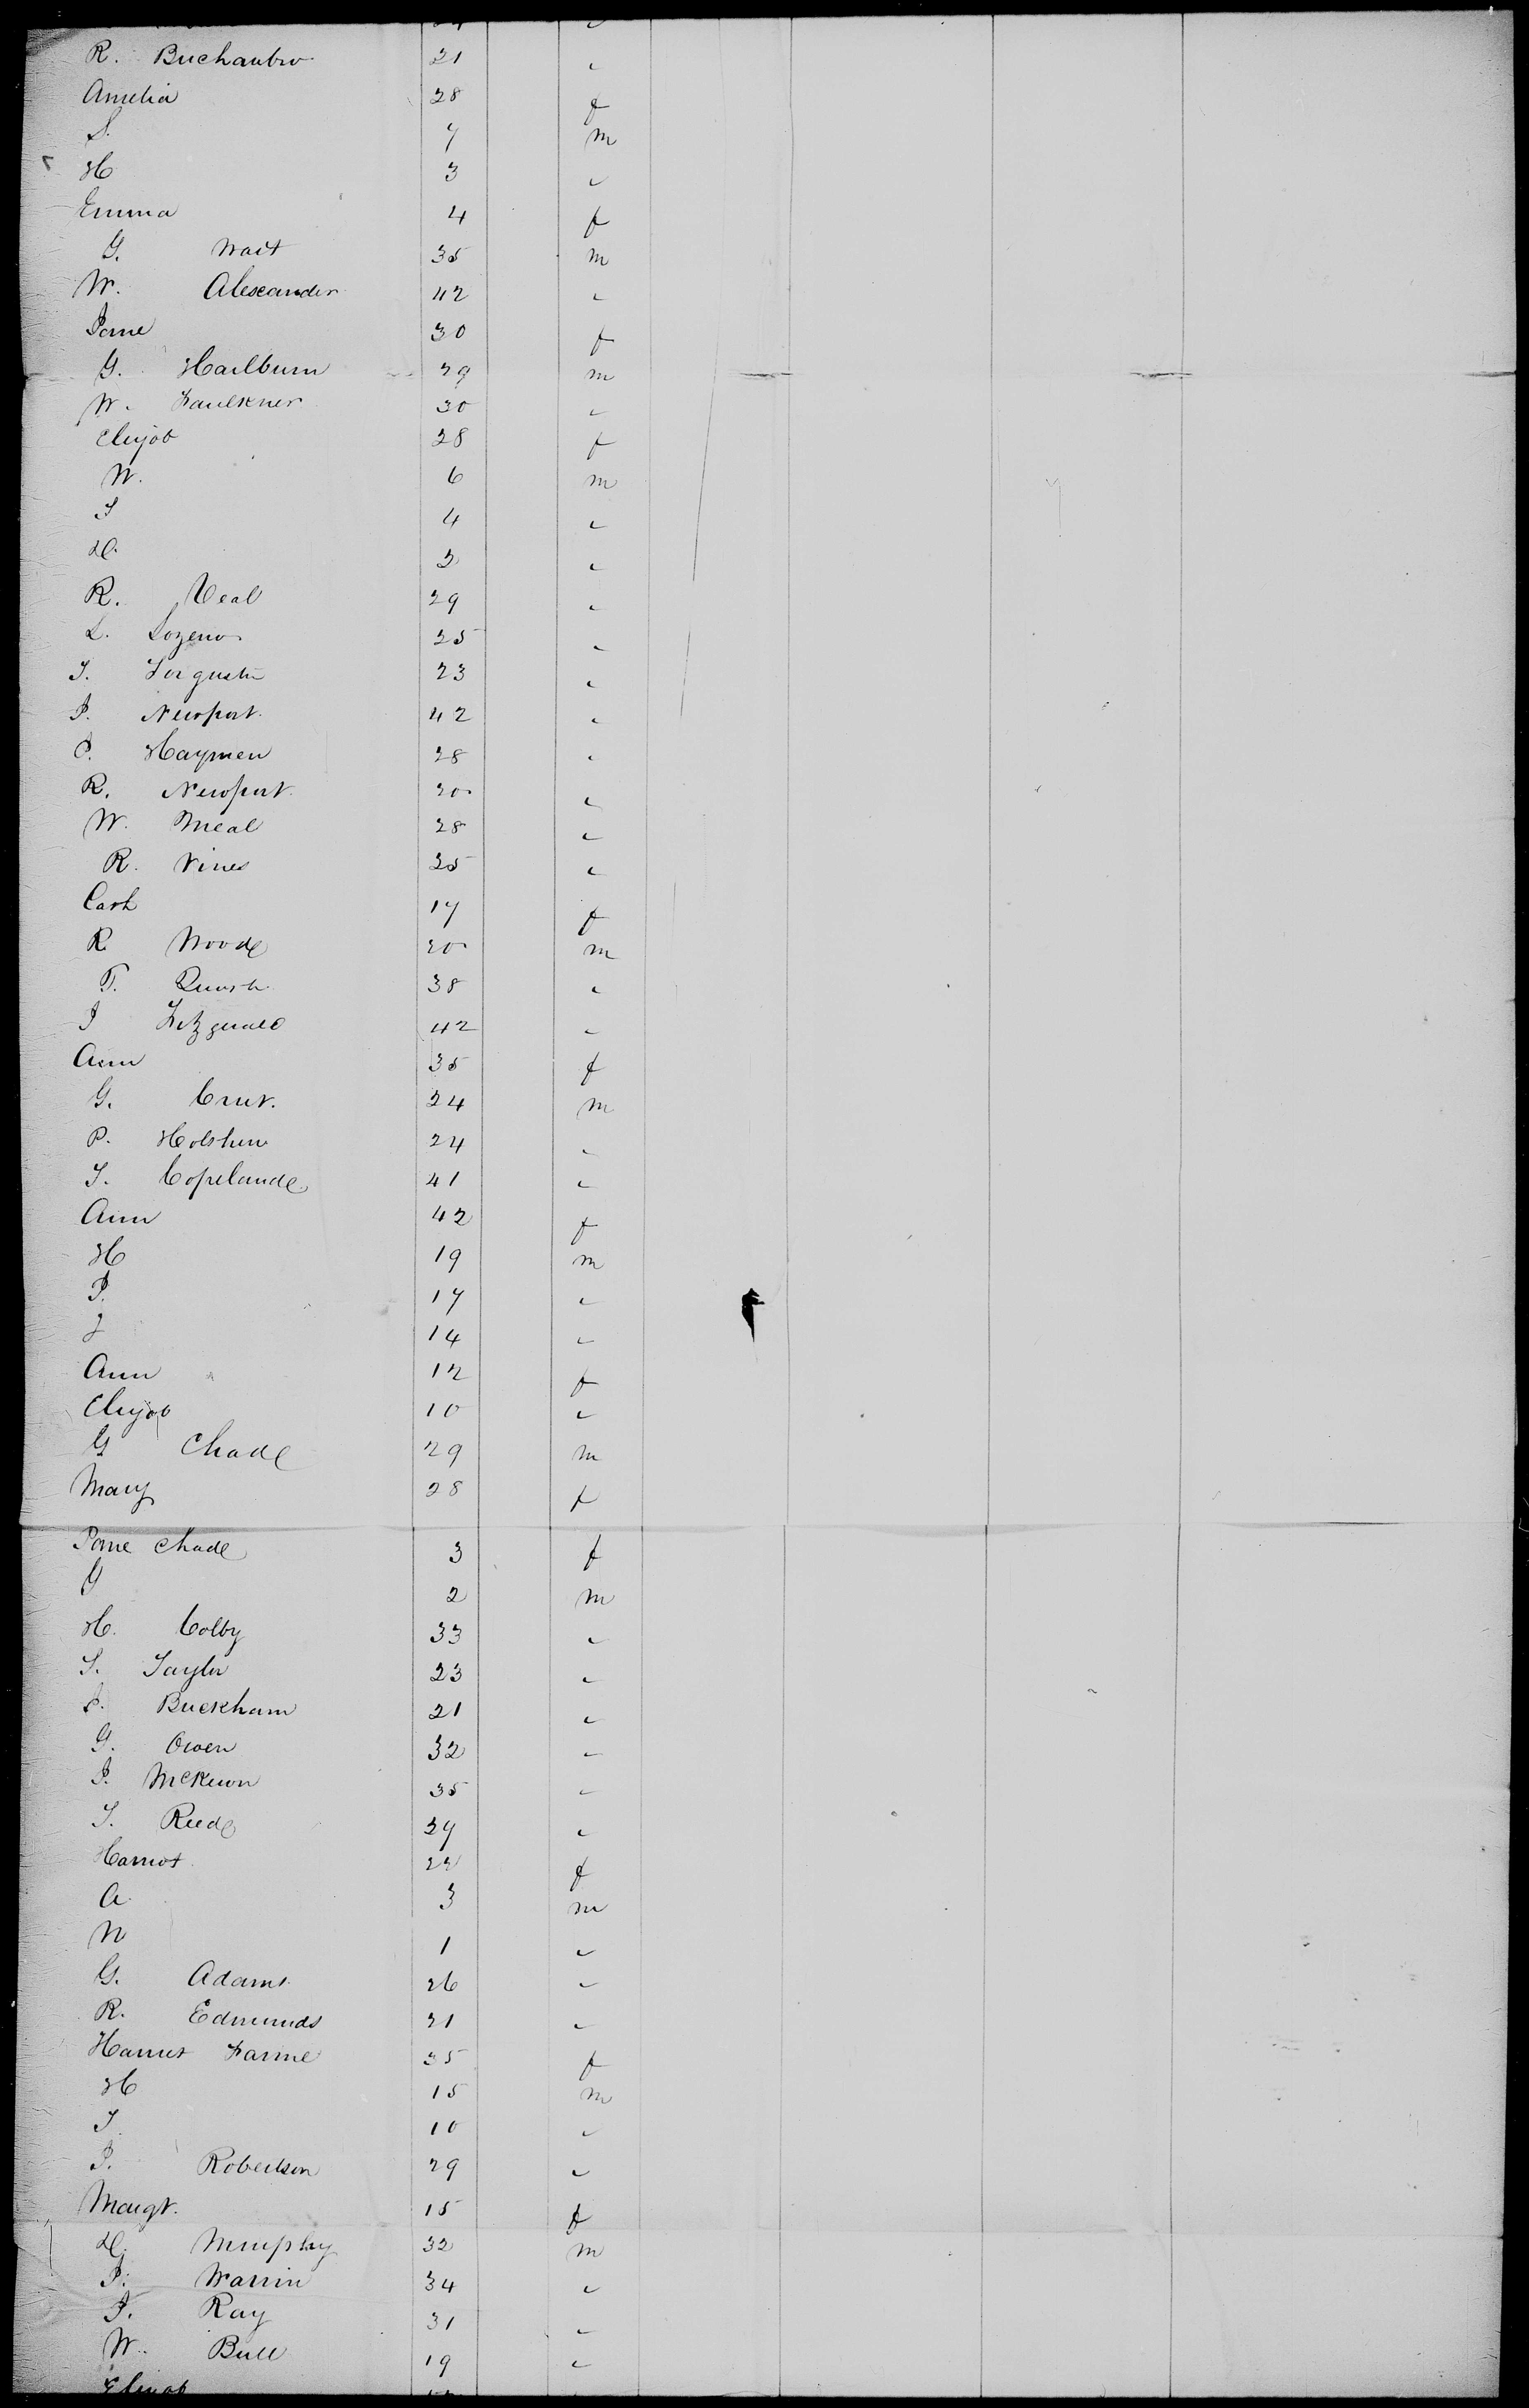 R. Buchanbro 21 "
Amelia 28 f
S. 7 m
H 3 "
Emma 4 f
G. Wait 35 m
W. Alexander 42 "
Jane 30 f
G. Hailburn 29 m
W. Faulkner 30 "
Elizab 28 f
W. 6 m
J 4 "
D. 3 "
R. Veal 29 "
L. Lozeno 25 "
J. 23 "
J. Newport 42 "
P. Haymen 28 "
R. Newport 20 "
W. Meal 28 "
R. Vines 25 "
Cath 17 f
R Wood 20 m
T. 38 "
J Fitzgerald 42 "
Ann 35 f
G. 24 m
P. Holshen 24 "
T. Copeland 41 "
Ann 42 f
H 19 m
J. 17 "
J 14 "
Ann 12 f
Elizab 10 "
G Chad 29 m
Mary 28 f
Jane Chad 3 f
G 2 m
H. Colby 33 "
T. Taylor 23 "
J. Buckham 21 "
G. Owen 32 "
J. McKewn 35 "
T. Reed 29 "
Harriot 22 f
A 3 m
W 1 "
G. Adams 26 "
R. Edmunds 21 "
Harriet Farme 35 f
H 15 m
J 10 "
J. Robertson 29 "
Margt. 15 f
D. Murphy 32 m
J. Warrin 34 "
J. Ray 31 "
W. Bull 19 "
Elizab